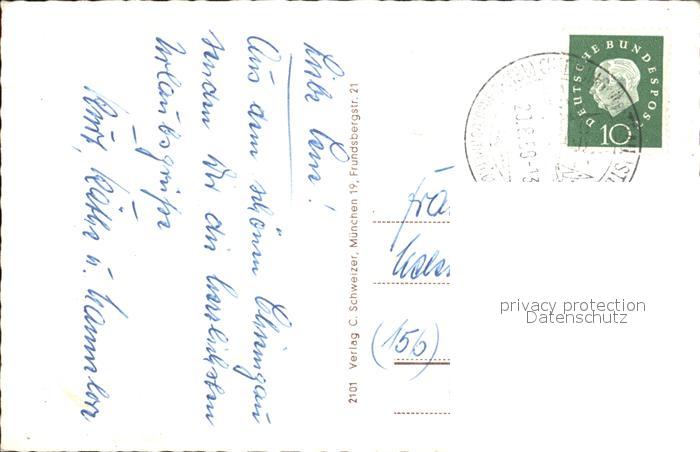 Liebe Omi!
Aus dem schönen Chiemgau
senden Dir die herzlichsten
Urlaubsgrüße
Käthe u. Hannelore
2101 Verlag C. Schweizer, München 19, Frundsbergstr. 21
DEUTSCHE BUNDESPOST
10
(156)
privacy protection
Datenschutz